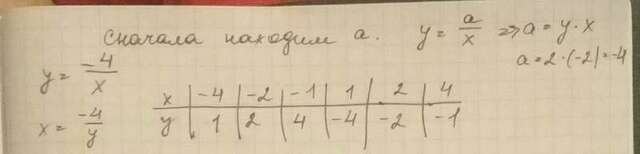 сначала находим a. y = a/x => a = y · x
a = 2 · (-2) = -4
y = -4/x
x | -4 | -2 | -1 | 1 | 2 | 4
x = -4/y
y | 1 | 2 | 4 | -4 | -2 | -1